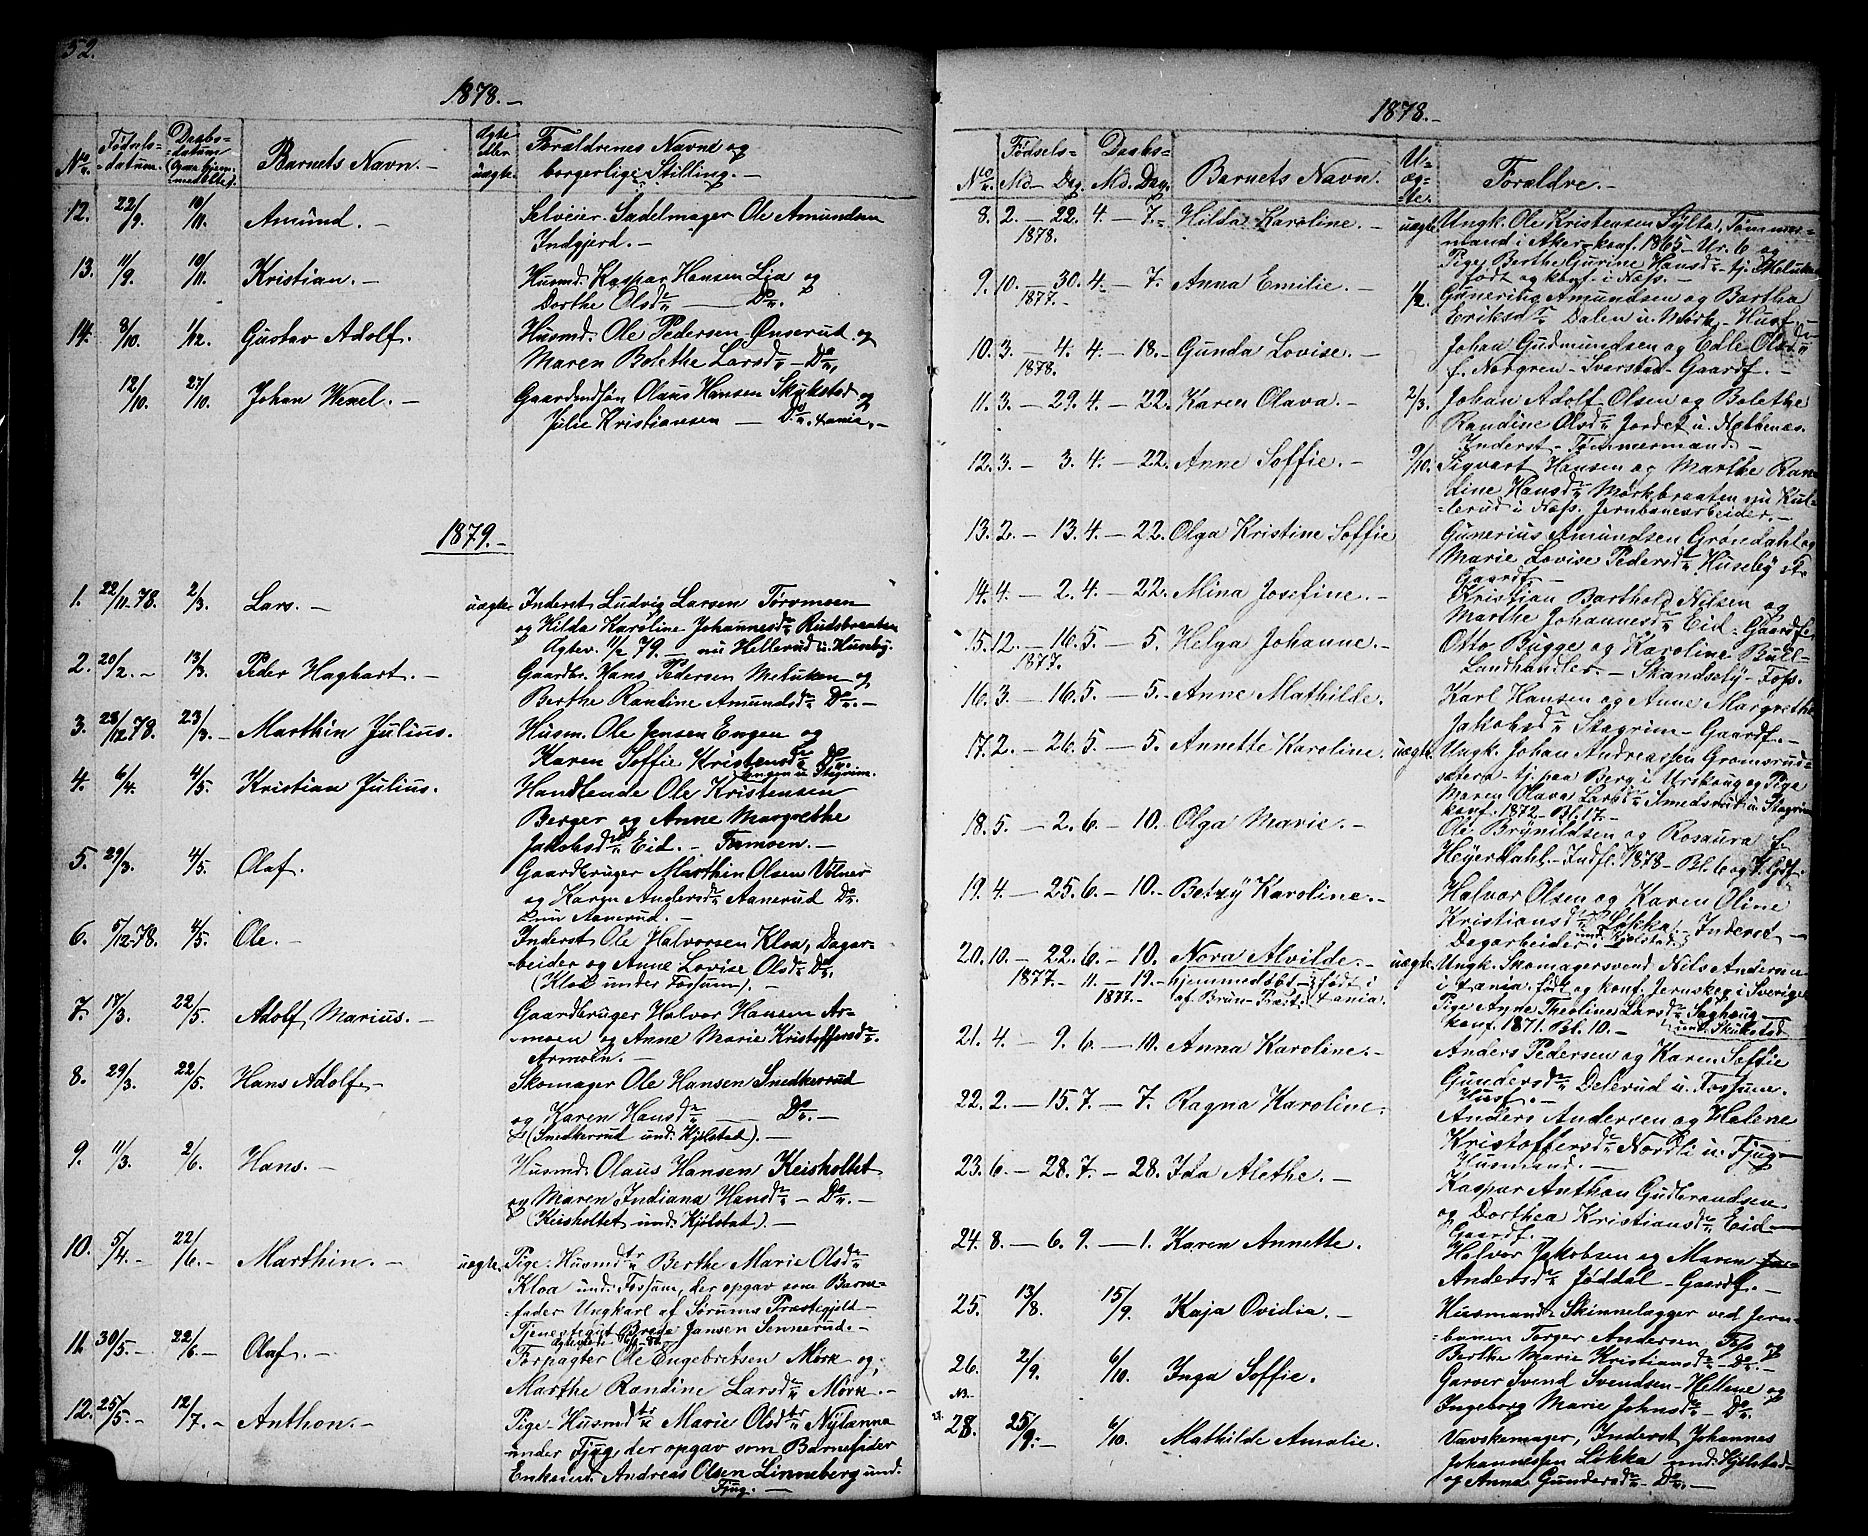 52.
1878.-
No. Fødsels-datum. Daabs-datum (paa hjemmedøbte). Barnets Navn.- Ægte eller uægte. Forældrenes Navne og borgerlige Stilling.-
12. 22/9. 10/11. Amund.- Selveier. Sadelmager Ole Amundsen
Indgjerd.-
13. 11/9. 10/11. Kristian.- Husmd. Kaspar Hansen Lia og
Dorthe Olsdr — Do.
14. 8/10. 1/12. Gustav Adolf. Husmd. Ole Pedersen Onserud og
Maren Bolethe Larsdr - Do.
12/10. 27/10. Johan Wexel.- Gaardmdsøn Olaus Hansen Skukstad og
Julie Kristiansen — Do. Fænia.-
1879.-
1. 22/11-78. 2/3. Lars.- uægte. Inderst Ludvig Larsen
og Hilda Karoline Johannesdr Rudsbraaten
Ægtev. 11/2 79.- nu Hellerud u. Huseby.
2. 20/2.- 13/3. Peder Hagbart.- Gaardbr. Hans Pedersen Meluken og
Berthe Randine Amundsdr Do.-
3. 28/12 78. 23/3.- Marthin Julius. Husm. Ole Jensen Engen og
Karen Soffie Kristensdr Do.-
Engen u. Stegrim.
4. 6/4. 4/5. Kristian Julius. Handlende Ole Kristensen
Berger og Anne Margrethe
Jakobsdr Eid.- Famoen.-
5. 29/3. 4/5. Olaf. Gaardbruger Marthin Olsen Volner
og Karen Andersdr Aanerud Do.
nu Aanerud.-
6. 5/12-78. 4/5. Ole.- Inderst Ole Halvorsen Kloa, Dagar-
beider og Anne Lovise Olsdr Do.
(Kloa under Fossum).-
7. 17/3. 22/5. Adolf Marius.- Gaardbruger Halvor Hansen Ar-
moen og Anne Marie Kristoffersdr
Armoen.-
8. 29/3. 22/5. Hans Adolf.- Skomager Ole Hansen Snedkerrud
og Karen Hansdr — Do.-
(Snedkerrud und. Kjølstad).-
9. 11/3. 2/6. Hans.- Husmd. Olaus Hansen Keisholtet
og Maren Indiana Hansdr - Do.-
(Keisholtet und. Kjølstad).-
10. 5/4.- 22/6.- Marthin.- uægte. Pige- Husmdtr Berthe Marie Olsdr
Kloa und. Fossum, der opgav som Barne-
fader Ungkarl af Sørums Præstegjeld
Tjenestegut Brede Jansen Sennerud.-
11. 30/5.- 22/6.- Olaf.- Forpagter Ole Engebretsen Mörk og
Marthe Randine Larsdr Mörk.-
12. 25/5.- 12/7.- Anthon.- Pige- Husmdtr Marie Olsdr Nylænna
under Fjug, der opgav som Barnefader
Enkemd. Andreas Olsen Linneberg und.
Fjug.-
1878.-
No. Fødsels- Md- Dag. Daabs- Md. Dag. Barnets Navn. U-æg-te. Forældre.-
8. 2. - 22. 4. - 7.- Hilda Karoline.- uægte. Ungk. Ole Kristensen Sylta, Tømmer-
1878. mand i Aker- konf. 1865- Nr. 6 og
Pige Berthe Gurine Hansdr- tj. Meluken
født og konf. i Næs.-
9. 10. - 30. 4. - 7. Anna Emilie.- 1/2. Gunerius Amundsen og Bertha
1877.- Eriksdr Dalen u. Mörk- Husf.
10. 3. - 4. 4. - 18.- Gunda Lovise.- Johan Gudmundsen og Edle Olsdr
1878. f. Norgren- Sverstad- Gaardf.-
11. 3. - 29. 4. - 22. Karen Olava.- 2/3. Johan Adolf Olsen og Bolethe
Randine Olsdr Jordet u. Nabbenæs.
Inderst- Tømmermand.-
12. 3. - 3. 4. - 22. Anne Soffie.- 9/10. Sigvart Hansen og Marthe Ran-
dine Hansdr Mörkbraaten nu Kul-
lerud i Næs. Jernbanearbeider.-
13. 2. - 13. 4. - 22. Olga Kristine Soffie Gunerius Amundsen Grøndahl og
Marie Lovise Pedersdr Huseby
Gaardf.-
14. 4. - 2. 4. - 22. Mina Josefine.- Kristian Barthold Nilsen og
Marthe Johannesdr Eid- Gaardf.
15. 12. - 16. 5. - 5. Helga Johanne.- Otto Bugge og Karoline Bull-
1877. Landhandler.- Skandseby- Foss.
16. 3. - 16. 5. - 5. Anne Mathilde. Karl Hansen og Anne Margrethe
Jakobsdr Stegrim- Gaardf.-
17. 2. - 26. 5. - 5. Annette Karoline. uægte. Ungk. Johan Andreassen Gromsrud-
sætera- tj. paa Berg i Urskoug og Pige
Maren Olava Larsdr Smedsrud u. Stegrim
konf. 1872- Bl. 17.-
18. 5. - 2. 6. - 10. Olga Marie.- Ole Brynildsen og Rosaura f.
Heyerdahl.- Indfl. 1878- Bl. 6 og 7.
19. 4. - 25. 6. - 10. Betzy Karoline.- Halvor Olsen og Karen Oline
Kristiansdr Løkka- Inderst-
Dagarbeider und. Kjølstad
20. 10. - 22. 6. - 10. Nora Alvilde.- uægte. Ungk. Skomagersvend Nils Andersen
1877.- 11. - 19.- hjemmedøbt- født i i Fænia, født og konf. Jernskog i Sverige
1877.- af Brun- Præst i Fænia. Pige Anne Theoline Larsdr Saghaug-
konf. 1871. Bl. 10.- und. Skukstad
21. 4. - 9. 6. - 10. Anna Karoline.- Anders Pedersen og Karen Soffie
Gundersdr Delerud u. Fossum.
Husf.-
22. 2. - 15. 7. - 7. Ragna Karoline. Anders Andersen og Helene
Kristoffersdr Nordli u. Fjug-
Husmand.-
23. 6. - 28. 7. - 28. Ida Alethe.- Kaspar Anthon Gudbrandsen
og Dorthea Kristiansdr Eid-
Gaardf.
24. 8. - 6. 9. - 1. Karen Annette. Halvor Jakobsen og Maren
Andersdr Jøddal- Gaardf.-
25. 13/8. 15/9. Kaja Ovidia.- Husmand- Skinnelægger ved Jern-
banen Torger Andersen, Foss og
Berthe Marie Kristiansdr- Do.-
26. 2/9. 6/10. Inga Soffie. Garver Svend Svendsen- Hellene og
Ingeborg Marie Johnsdr- Do.
28. 25/9.- 6/10. Mathilde Amalie. Vævskemager, Inderst Johannes
Johannessen Løkka und. Kjølstad-
og Anna Gundersdr- Do.-